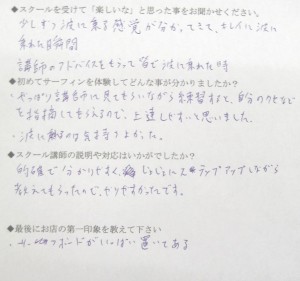 ◆スクールを受けて「楽しいな」と思った事をお聞かせください。
少しずつ波に乗る感覚が分かってきて、キレイに波に
乗れた瞬間
講師のアドバイスをもらって皆で波に乗れた時
◆初めてサーフィンを体験してどんな事が分かりましたか?
・やっぱり講師に見てもらいながら練習すると、自分のクセなど
を指摘してもらえるので、上達しやすいと思いました。
・波に触るのは気持ちよかった。
◆スクール講師の説明や対応はいかがでしたか?
的確で分かりやすく、じょじょにステップアップしながら
教えてもらったので、やりやすかったです。
◆最後にお店の第一印象を教えて下さい
・サーフボードがいっぱい置いてある